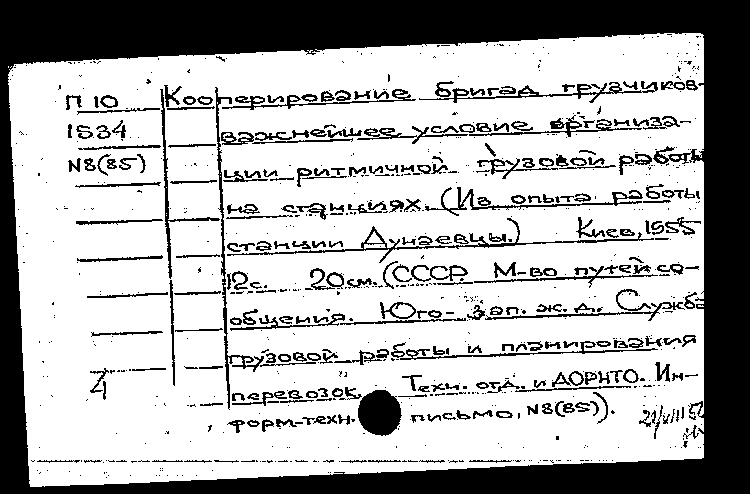 П 10 Кооперирование бригад грузчиков-
1534 важнейшее условие организа-
N8(85) ции ритмичной грузовой работы
на станциях. (Из опыта работы
станции Дунаевцы.) Киев, 1955
12с. 20см. (СССР. М-во путей со-
общения. Юго-зап. ж.д. Служба
грузовой работы и планирования
4 перевозок. Техн. отд. и ДОРНТО. Ин-
форм-техн. письмо, N8(85)).